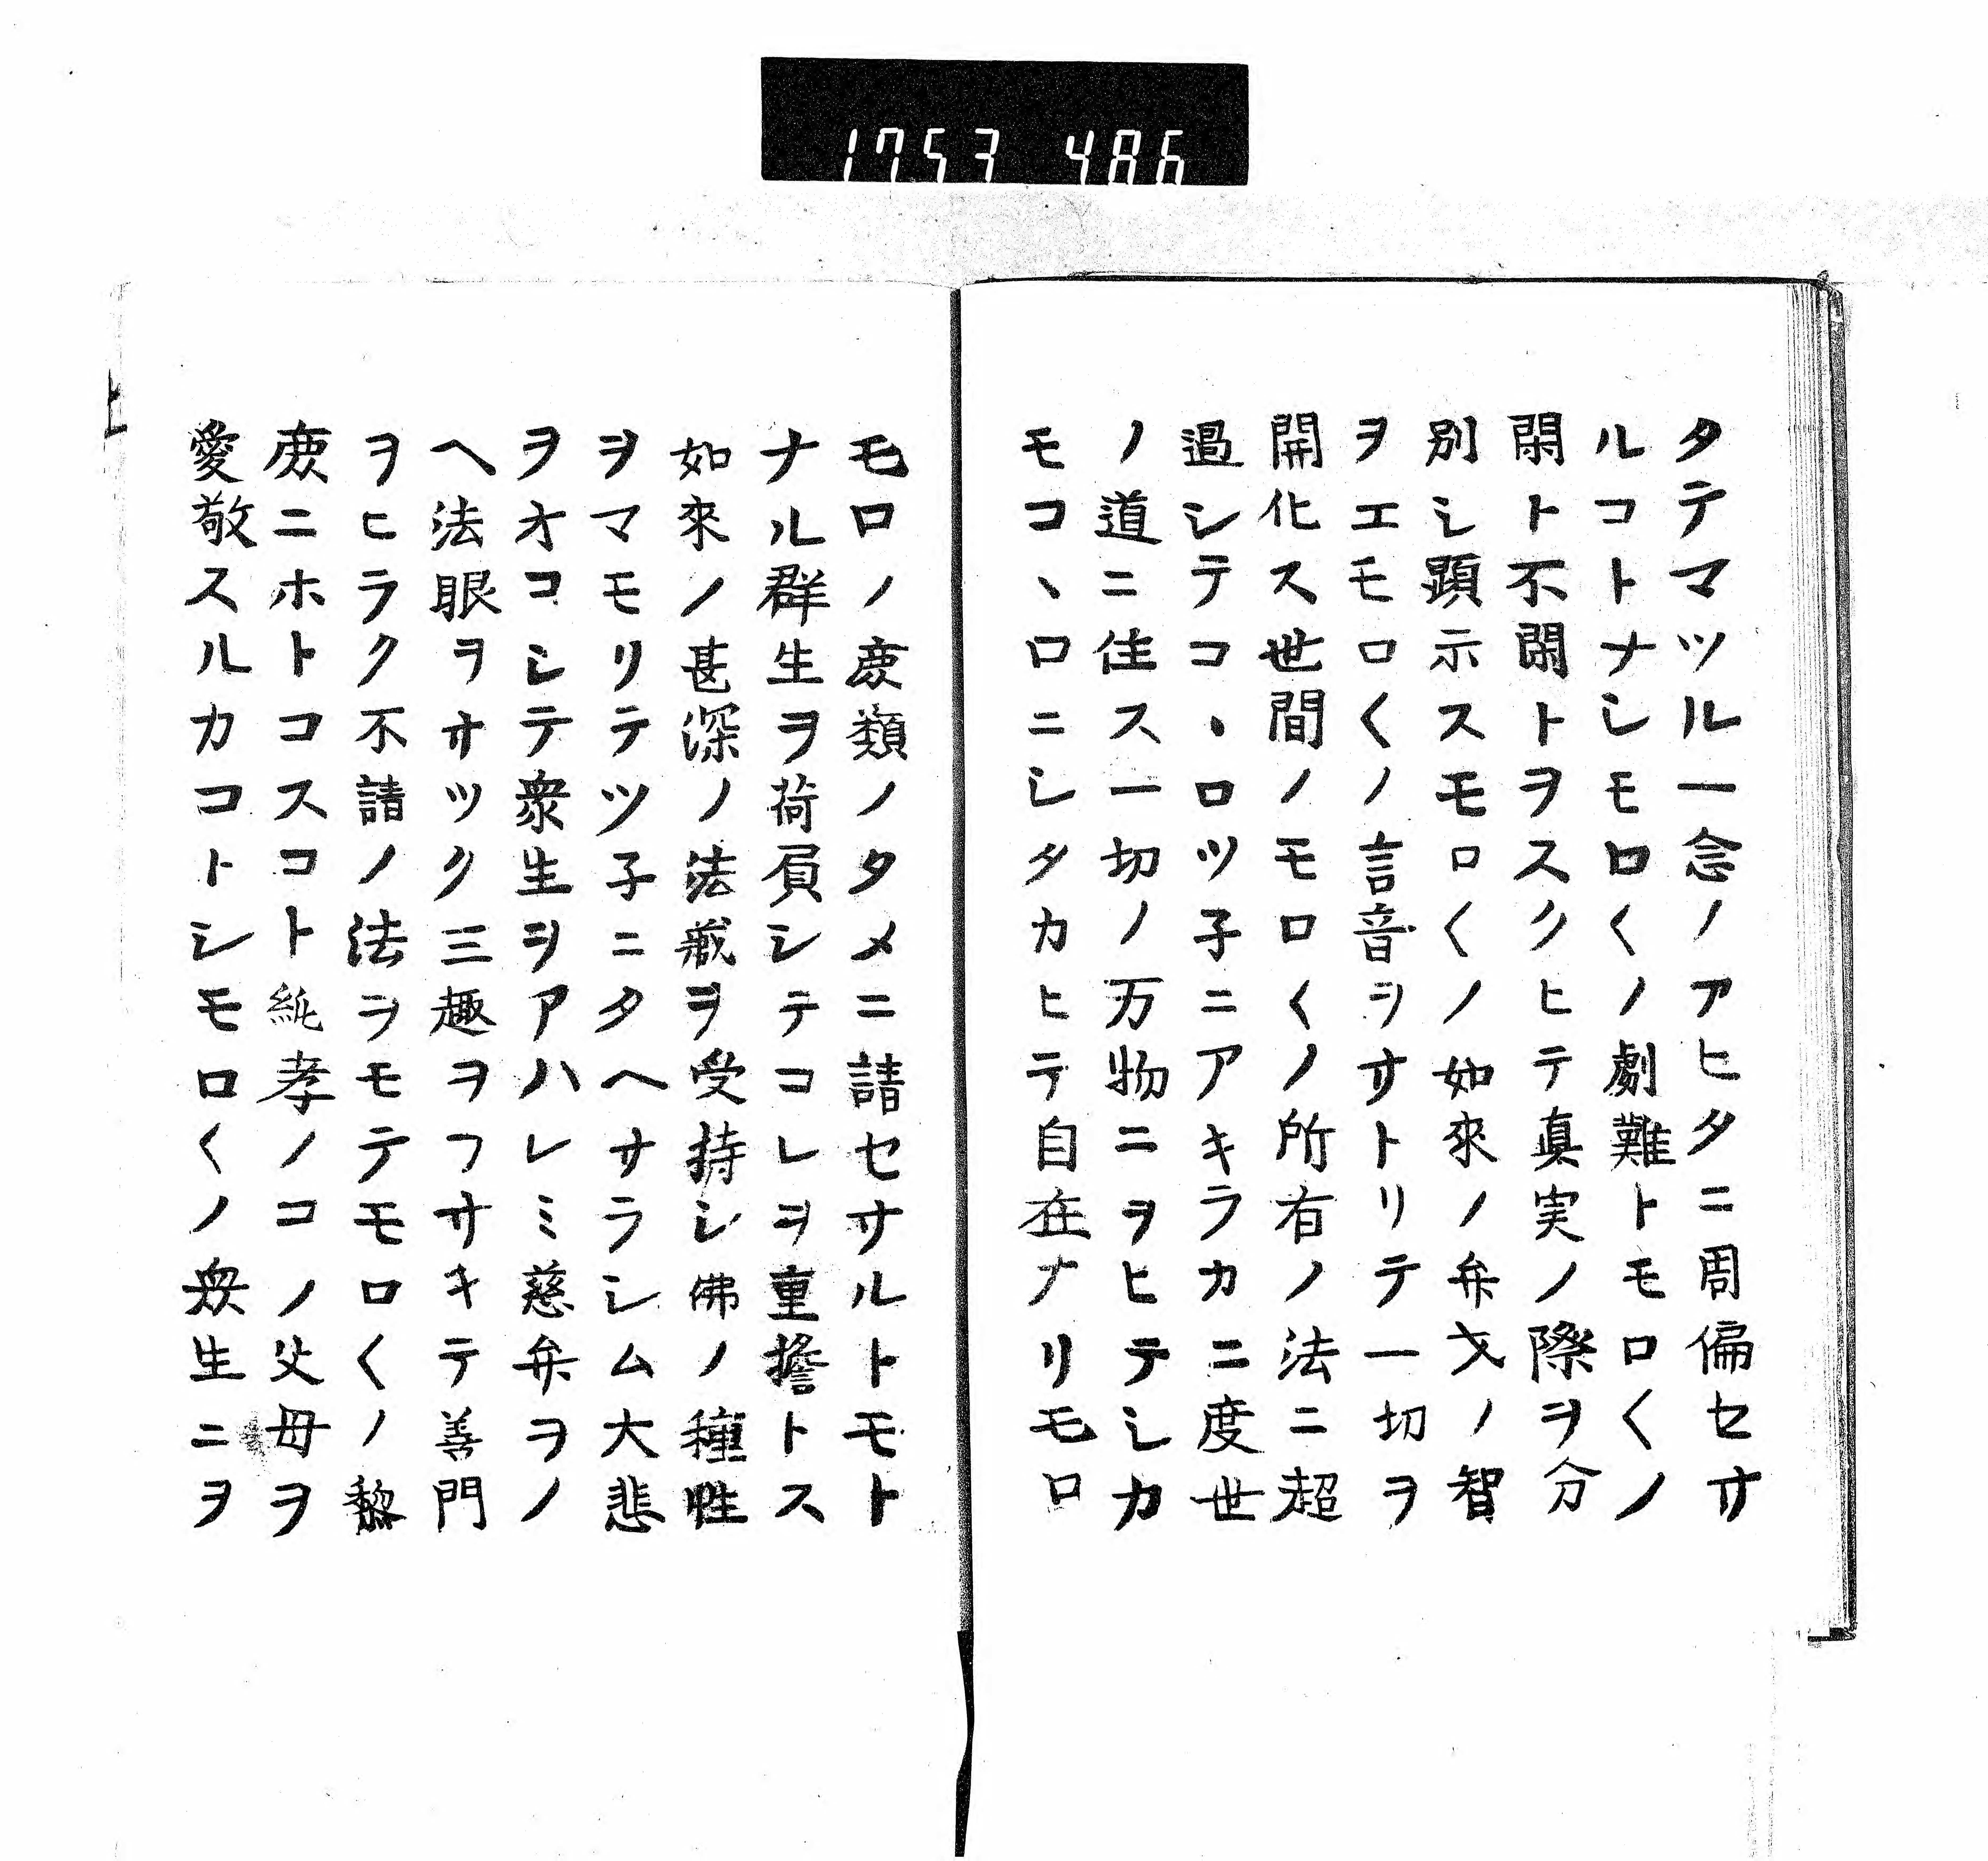 1753 486
タテマツル一念ノアヒタニ周偏セサ
ルコトナシモロ〱ノ劇難トモロ〱ノ
閑ト不閑トヲスクヒテ真実ノ際ヲ分
別シ顕示スモロ〱ノ如來ノ弁才ノ智
ヲエモロ〱ノ言音ヲサトリテ一切ヲ
開化ス世間ノモロ〱ノ所有ノ法ニ超
過シテコヽロツ子ニアキラカニ度世
ノ道ニ住ス一切ノ万物ニヲヒテシカ
モコヽロニシタカヒテ自在ナリモロ
モロノ庶類ノタメニ請セサルトモト
ナル群生ヲ荷負シテコレヲ重擔トス
如來ノ甚深ノ法蔵ヲ受持シ佛ノ種性
ヲマモリテツ子ニタヘサラシム大悲
ヲオコシテ衆生ヲアハレミ慈弁ヲノ
ヘ法眼ヲサツク三趣ヲフサキテ善門
ヲヒラク不請ノ法ヲモテモロ〱ノ黎
庶ニホトコスコト純孝ノコノ父母ヲ
愛敬スルカコトシモロ〱ノ衆生ニヲ
上